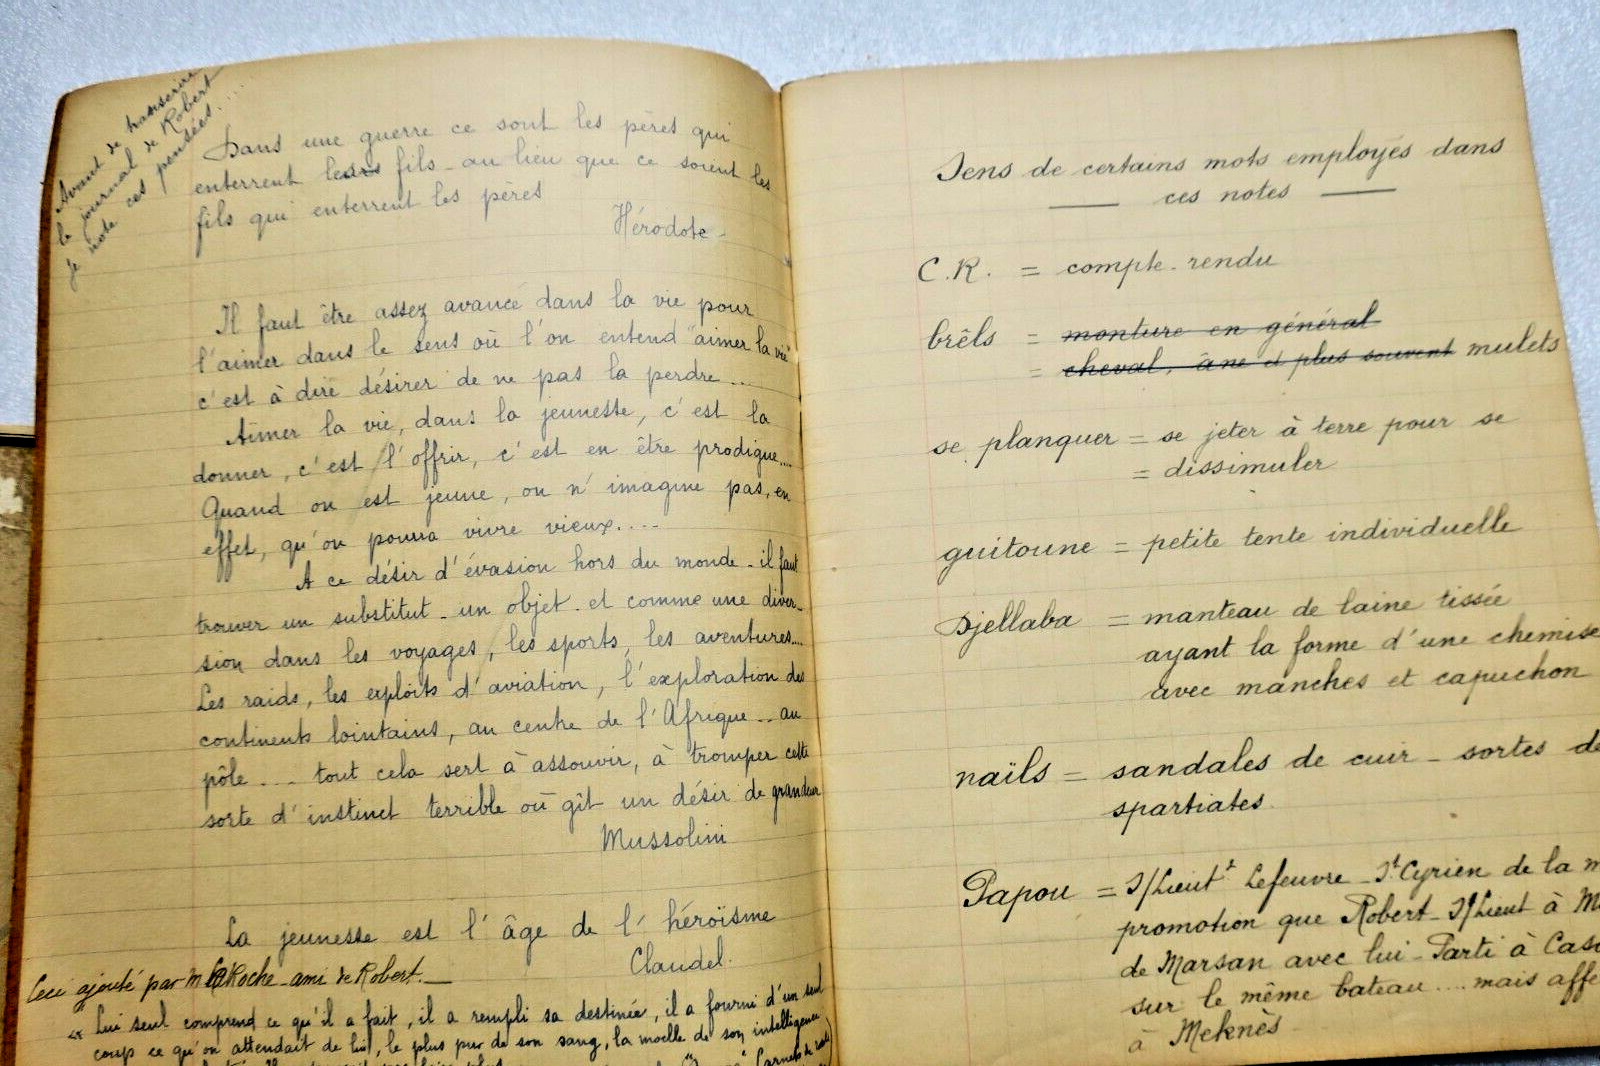 Avant de transcrire
le journal de Robert
je note ces pensées....
Dans une guerre ce sont les pères qui
enterrent leurs fils - au lieu que ce soient les
fils qui enterrent les pères
Hérodote -
Il faut être assez avancé dans la vie pour
l'aimer dans le sens où l'on entend "aimer la vie"
c'est à dire désirer de ne pas la perdre...
Aimer la vie, dans la jeunesse, c'est la
donner, c'est l'offrir, c'est en être prodigue....
Quand on est jeune, on n'imagine pas, en
effet, qu'on pourra vivre vieux....
A ce désir d'évasion hors du monde - il faut
trouver un substitut - un objet - et comme une diver-
sion dans les voyages, les sports, les aventures....
Les raids, les exploits d'aviation, l'exploration des
continents lointains, au centre de l'Afrique... au
pôle ... tout cela sert à assouvir, à tromper cette
sorte d'instinct terrible où gît un désir de grandeur
Mussolini
La jeunesse est l'âge de l'héroïsme
Claudel.
Ceci ajouté par M LaRoche - ami de Robert. —
"Lui seul comprend ce qu'il a fait, il a rempli sa destinée, il a fourni d'un seul
coup ce qu'on attendait de lui, le plus pur de son sang, la moelle de son intelligence
Sens de certains mots employés dans
— ces notes —
C.R. = compte-rendu
brêls = monture en général
= cheval, âne et plus souvent mulets
se planquer = se jeter à terre pour se
= dissimuler
guitoune = petite tente individuelle
Djellaba = manteau de laine tissée
ayant la forme d'une chemise
avec manches et capuchon
naïls = sandales de cuir - sortes de
spartiates.
Papou = S/Lieut! Lefeuvre - St Cyrien de la m
promotion que Robert - S/Lieut à M
de Marsan avec lui - Parti à Cas
sur le même bateau.... mais affe
à Meknès